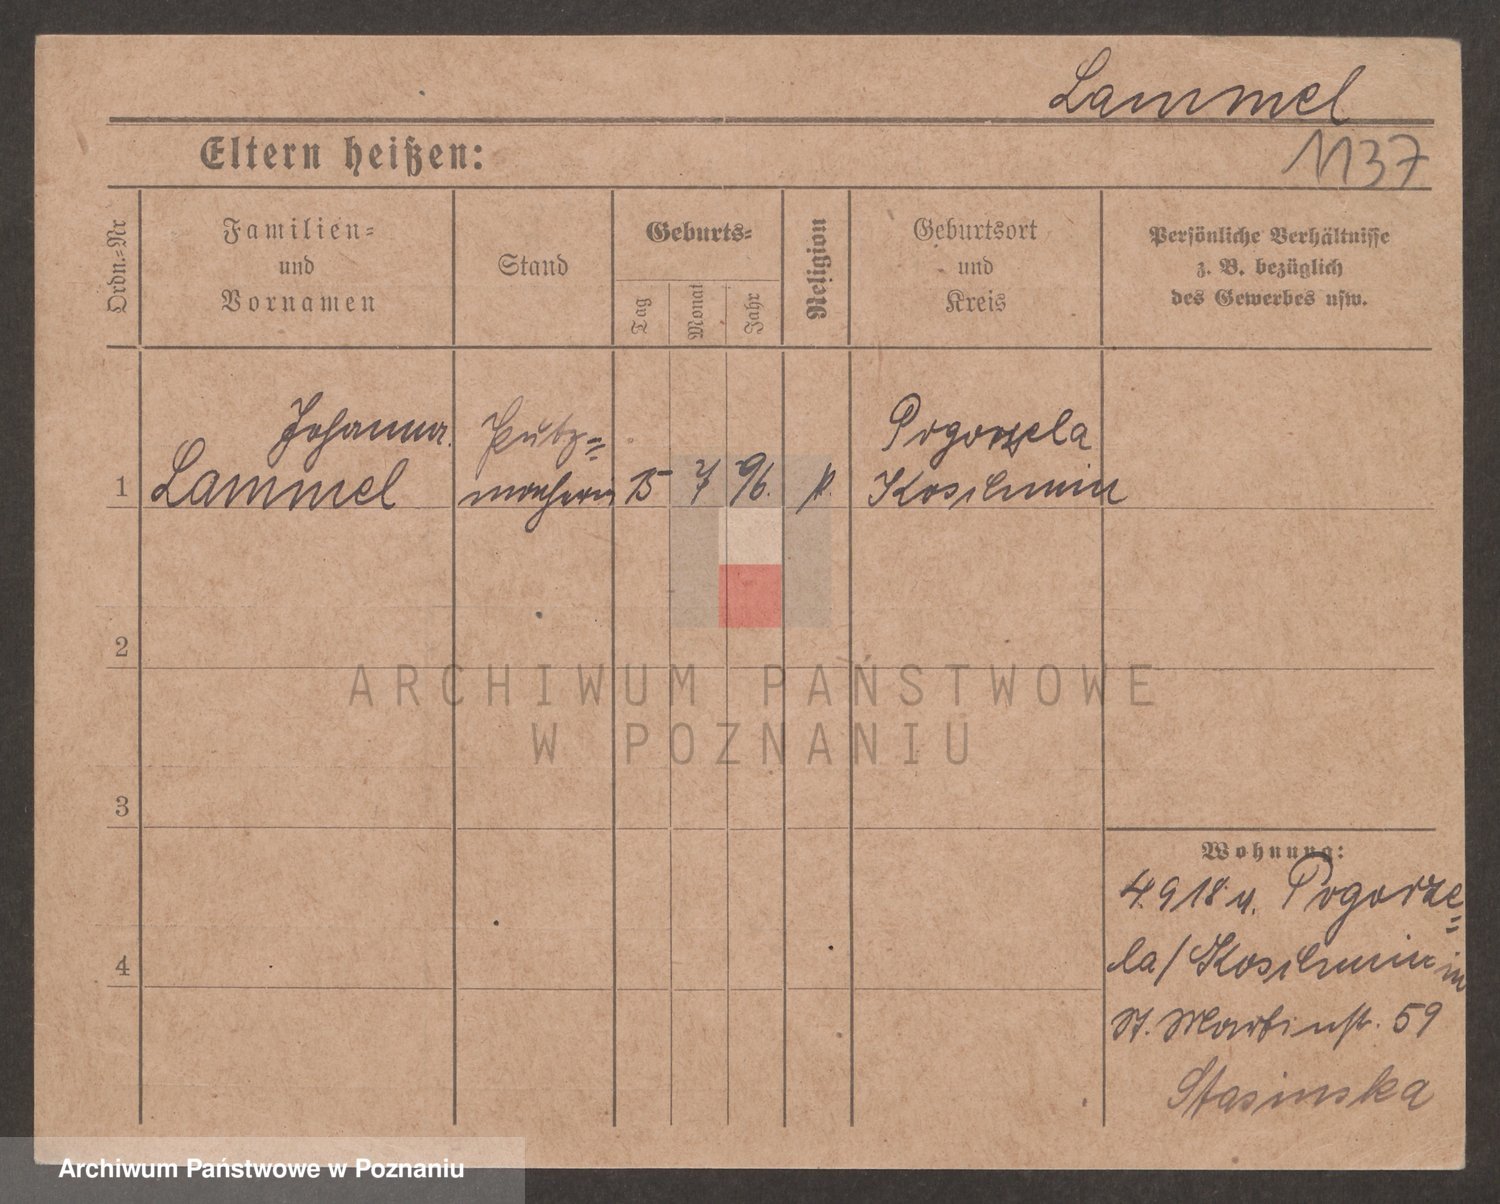 Lammel
1137
Eltern heißen:
Ordn.=Nr
Familien=
und
Vornamen
Stand
Geburts=
Tag
Monat
Jahr
Religion
Geburtsort
und
Kreis
Persönliche Verhältnisse
z. B. bezüglich
des Gewerbes usw.
Johanna
1 Lammel
Putz=
macherin
15 7 96. k.
Pogorzela
Koschmin
2
3
4
Wohnung:
4.9 18 v. Pogorze=
la/Koschmin in
St. Martinstr. 59
Stasinska
ARCHIWUM PAŃSTWOWE
W POZNANIU
Archiwum Państwowe w Poznaniu